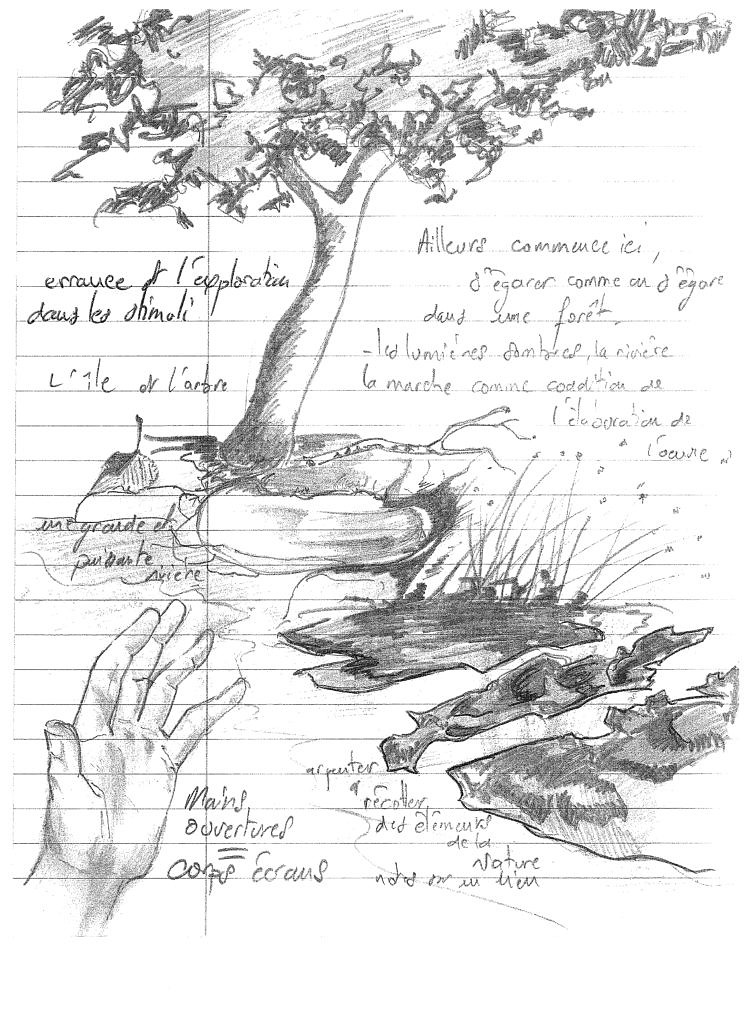 Ailleurs commence ici,
s'égarer comme on s'égare
dans une forêt.
- les lumières sombres, la rivière
la marche comme condition de
l'élaboration de
l'oeuvre
errance et l'exploration
dans les stimuli
L'île et l'arbre
une grande et
puissante
rivière
Mains
ouvertures
=
corps écrans
arpenter
récolter
des éléments
de la
Nature
notes sur un lien